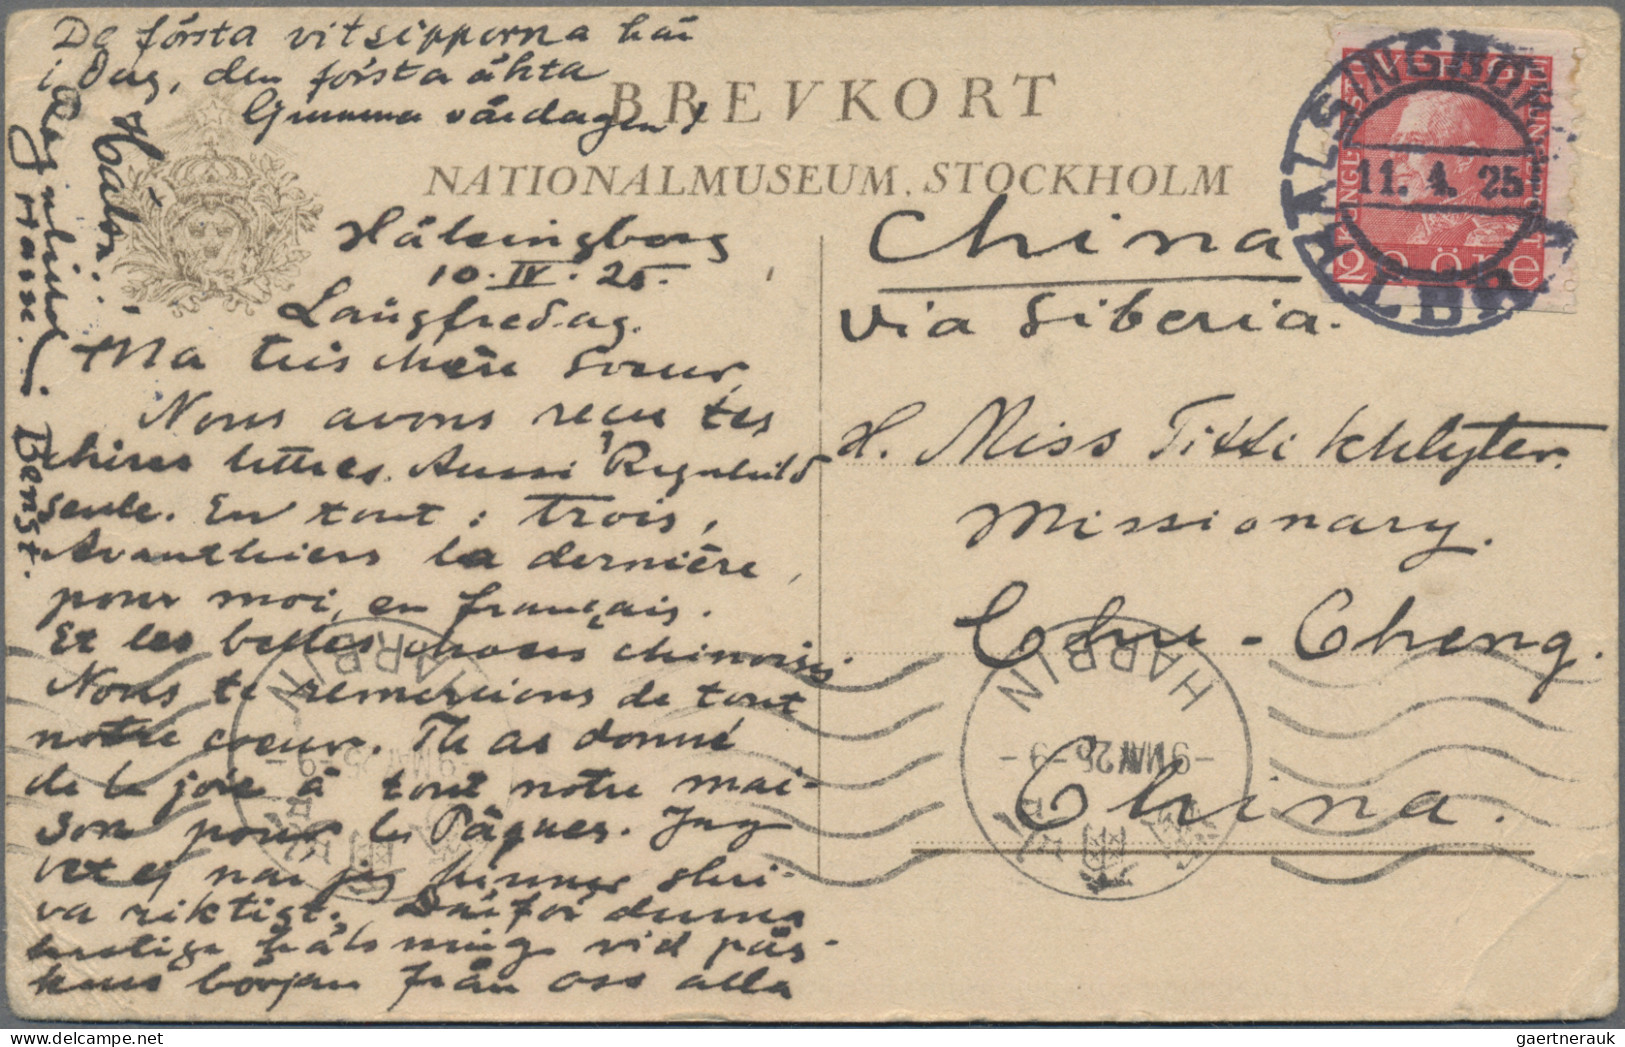 De första vitsipporna här
i Dag, den första äkta
ljumma vårdagen!
BREVKORT
NATIONALMUSEUM, STOCKHOLM
Hälsingborg
10. IV. 25.
Långfredag.
Ma très chère soeur,
Nous avons reçu tes
chères lettres. Aussi Ragnhild
seule. En tout : trois,
Avanthiers la dernière,
pour moi, en français.
Et les belles choses chinoises
Nous te remercions de tout
notre coeur. Tu as donné
de la joie à tout notre mai-
son pour les Pâques. Jag
vet ej när jag hinner skri-
va riktigt. Därför denna
hastiga hälsning vid pås-
kens början från oss alla
Hälsn.
Ragnhild
Hasse
Bengt.
China
via Siberia.
H. Miss Titti Klyhter.
Missionary.
Chu-Cheng.
China.
SVERIGE
20 öre
HÄLSINGBORG
11. 4. 25
LBR
HARBIN
-9 MAY 25-9-
HARBIN
-9 MAY 25-9-
gaertnerauk